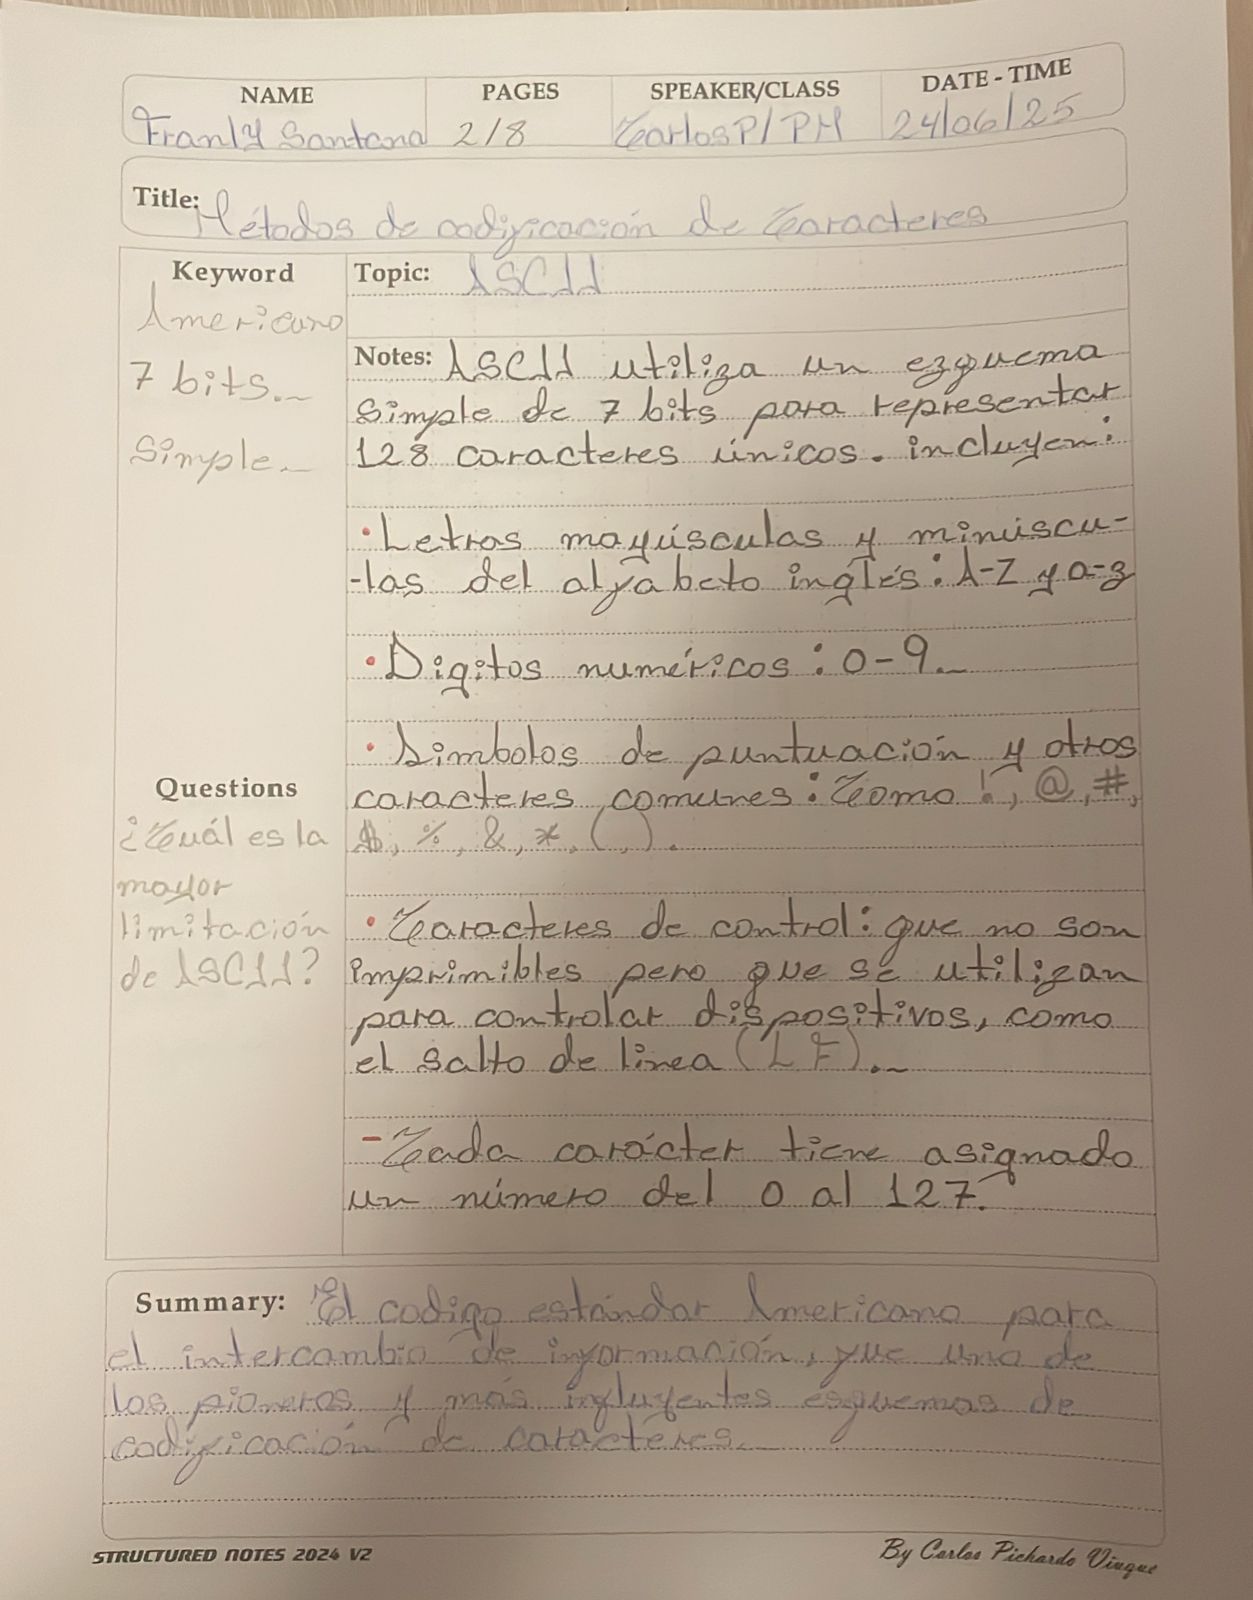 NAME PAGES SPEAKER/CLASS DATE - TIME
Franly Santana 2/8 CarlosP/PM 24/06/25
Title: Métodos de codificación de Caracteres
Keyword
Americano
7 bits.
Simple.
Topic: ASCII
Notes: ASCII utiliza un ezquema
simple de 7 bits para representar
128 caracteres únicos. incluyen:
• Letras mayúsculas y minúscu-
-las del alfabeto inglés: A-Z y a-z
• Digitos numéricos: 0-9.
• Simbolos de puntuación y otros
caracteres comunes: Como !, @, #,
$, %, &, *, (, ).
• Caracteres de control: que no son
imprimibles pero que se utilizan
para controlar dispositivos, como
el salto de linea (LF).
- Cada carácter tiene asignado
un número del 0 al 127.
Questions
¿Cuál es la
mayor
limitación
de ASCII?
Summary: El codigo estándar Americano para
el intercambio de información, fue uno de
los pioneros y más influyentes esquemas de
codificación de caractéres.
STRUCTURED NOTES 2024 V2
By Carlos Pichardo Viuque